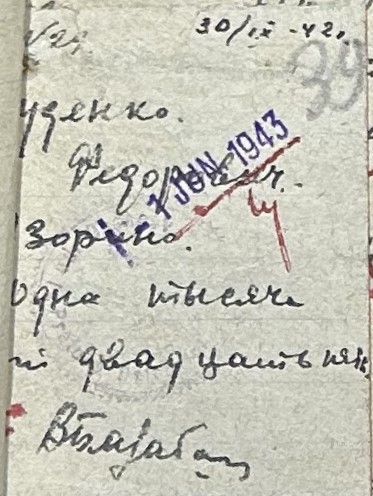 30/IX-42г.
39
уденко.
Федорович.
1 JUN 1943
Зорино.
одна тысяча
двадцать пять